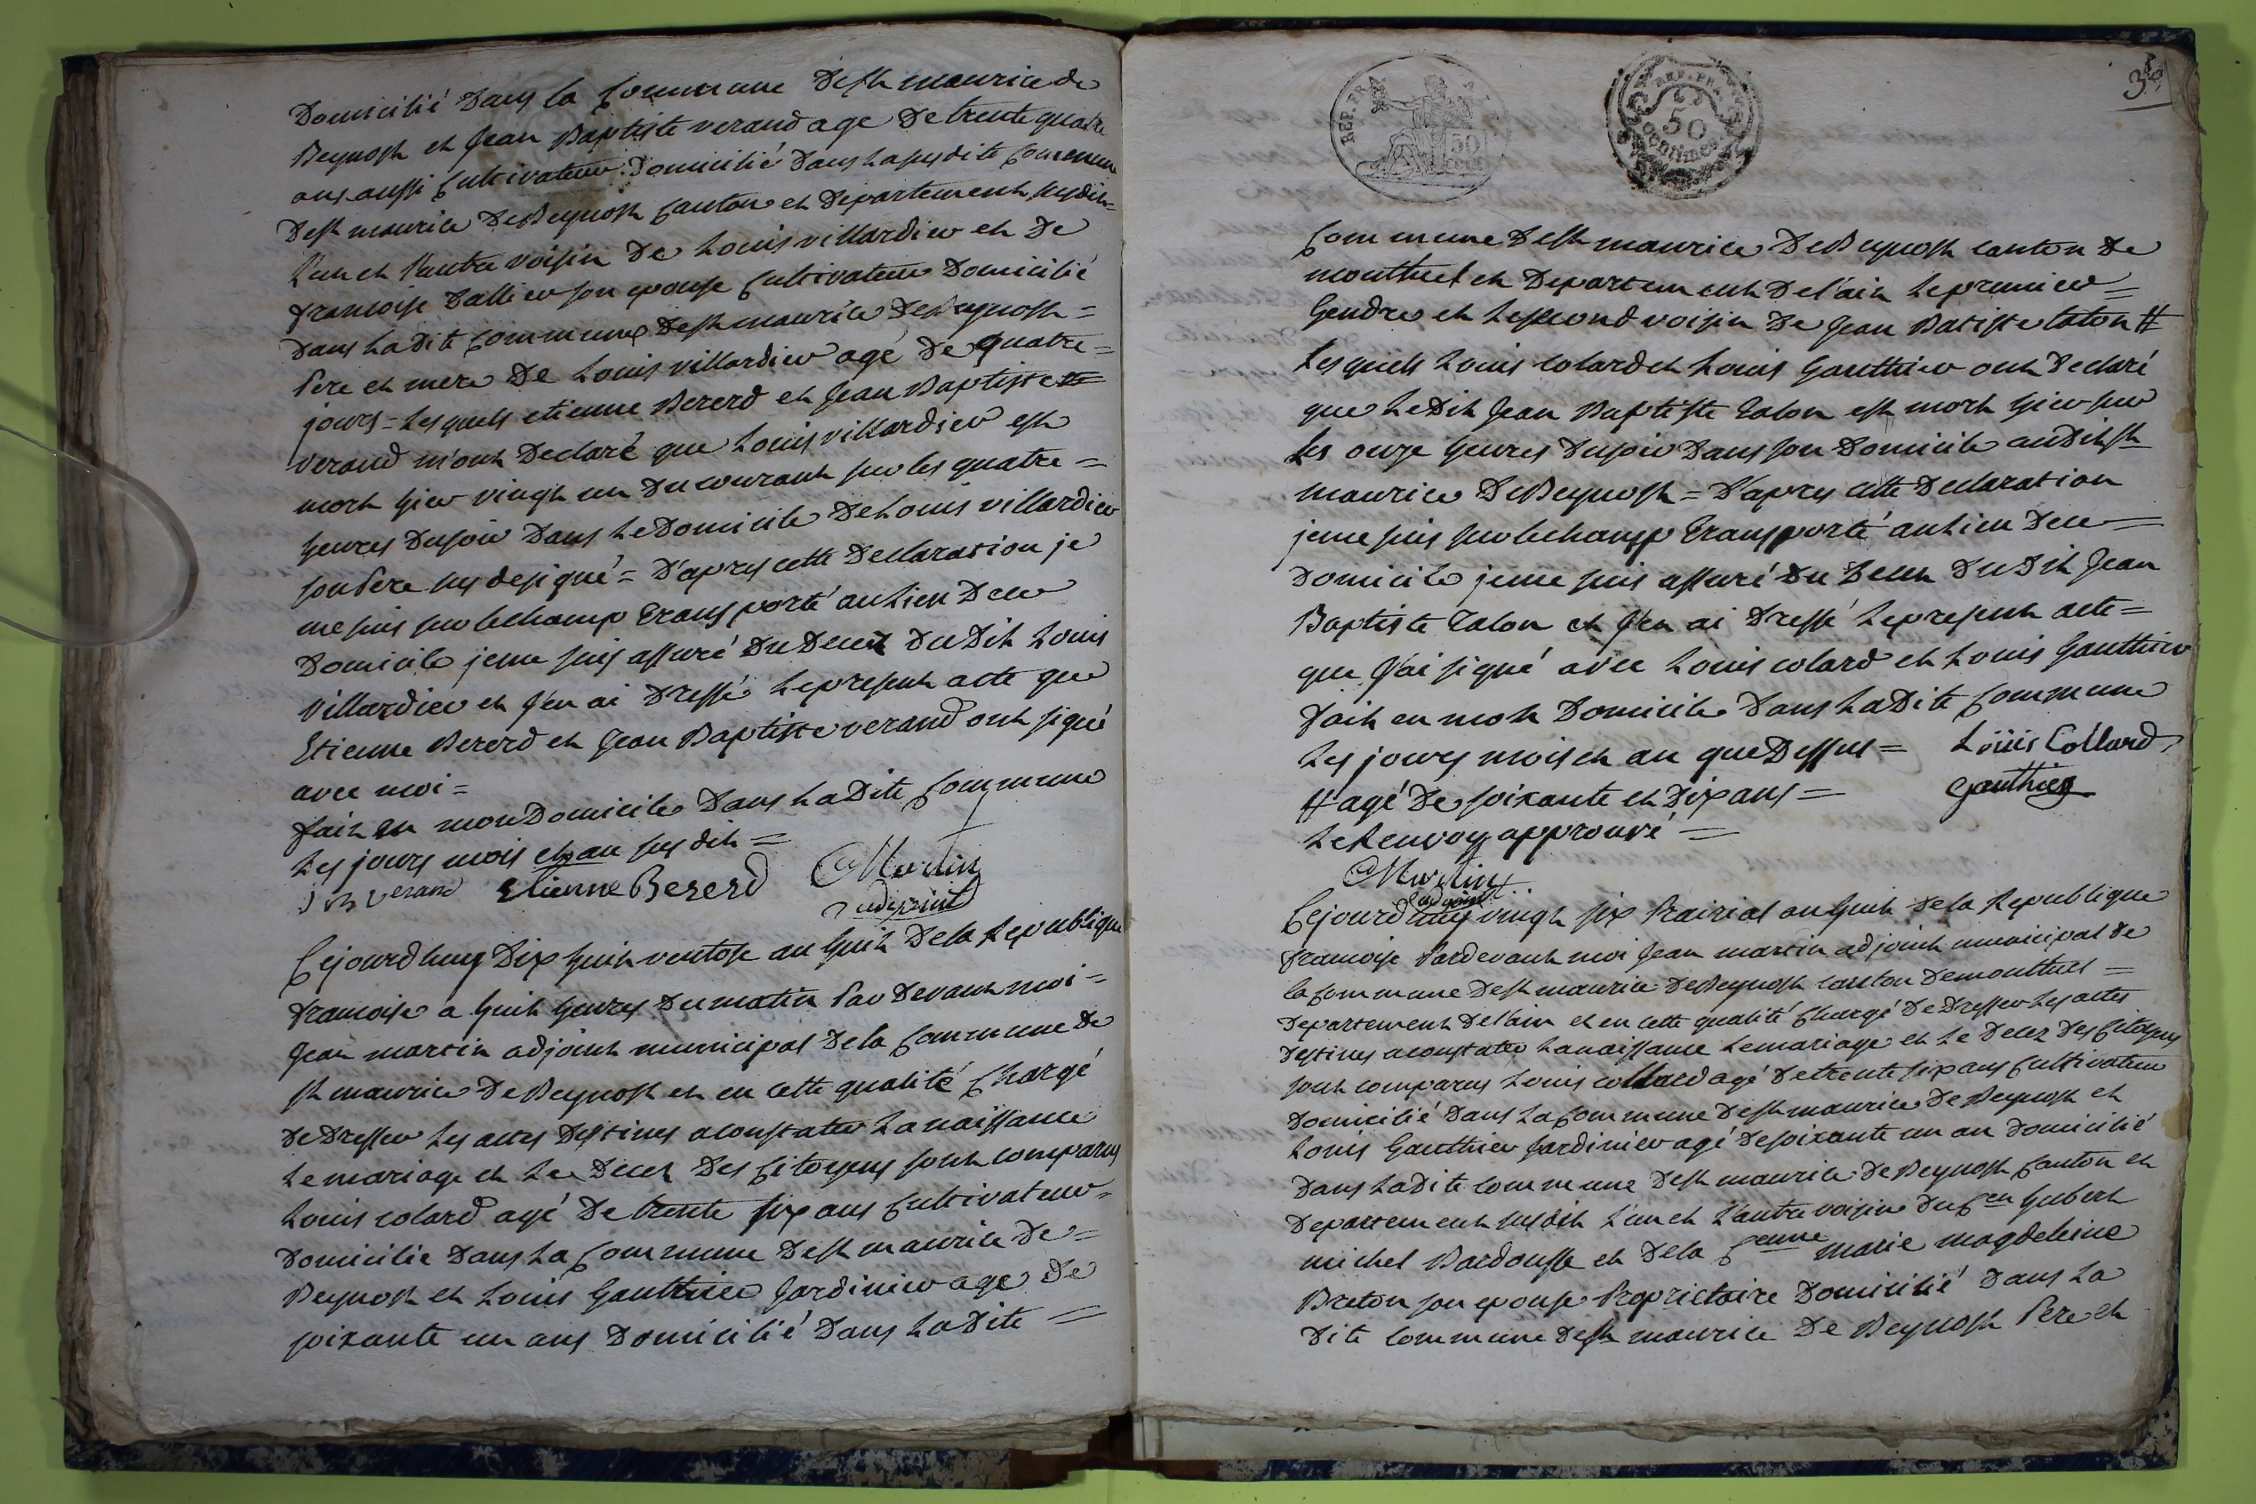 Domicilié Dans la Commune dest maurice de
Beynost et Jean Baptiste verand age De trente quatre
ans aussi Cultivateur Domicilié Dans la susdite Commune
dest maurice De Beynost Canton et Departement susdit =
L'un et L'autre voisin De Louis villardier et De
francoise Dallier son epouse Cultivateur Domicilié
Dans La Dite Commune dest maurice De Beynost =
Pere et mere De Louis villardier agé De quatre =
jours = Les quels etienne Bererd et Jean Baptiste
verand m'ont Declaré que Louis villardier est
mort hier vingt un Du courant sur les quatre =
heures Du soir Dans Le Domicile De Louis villardier
son Pere sus designé = D'apres cette Declaration je
me suis sur le champ transporté au Lieu De ce
Domicile je me suis assuré Du Decet Du Dit Louis
villardier et J'en ai Dressé Le present acte que
Etienne Bererd et Jean Baptiste verand ont signé
avec moi =
fait en mon Domicile Dans La Dite Commune
Les jours mois et an sus dit =
J B verand Etienne Bererd Martin
adjoint
Cejourdhuy Dix huit ventose an huit De la Republique
francoise a huit heures Du matin Par Devant moi =
Jean martin adjoint municipal De la Commune De
st maurice De Beynost et en cette qualité Chargé
De Dresser Les actes Destines a constater La naissance
Le mariage et Le Decet Des Citoyens sont comparus
Louis colard agé De trente six ans Cultivateur =
Domicilie Dans La Commune Dest maurice De =
Beynost et Louis Gauthier Jardinier age De
soixante un ans Domicilié Dans La Dite =
REP. FRA.
50
REP. FRA.
50
centimes
Commune Dest maurice De Beynost canton De
montluel et Departement De l'ain Le premier =
Gendre et Le second voisin De Jean Batiste talon #
Les quels Louis colard et Louis Gauthier ont Declaré
que Le Dit Jean Baptiste talon est mort hier sur
les onze heures Du soir Dans son Domicile au Dit st
maurice De Beynost = D'apres cette Declaration
je me suis sur le champ transporté au Lieu De ce =
Domicile je me suis assuré Du Decet Du Dit Jean
Baptiste talon et J'en ai Dressé Le present acte =
que J'ai signé avec Louis colard et Louis Gauthier
fait en mon Domicile Dans La Dite Commune
Les jours mois et an que Dessus = Loüis Collard
# agé De soixante et Dix ans = Gauthier
Le Renvoy approuvé =
Martin
adjoint
Cejourdhuy vingt six Prairial an huit De la Republique
francoise Pardevant moi Jean martin adjoint municipal De
la Commune Dest maurice De Beynost canton De montluel =
Departement De l'ain et en cette qualité Chargé De Dresser Les actes
Destines a constater La naissance Le mariage et Le Decez Des Citoyens
sont comparus Louis collard agé De trente six ans Cultivateur
Domicilié Dans La Commune Dest maurice De Beynost et
Louis Gauthier Jardinier agé De soixante un an Domicilié
Dans La Dite Commune Dest maurice De Beynost Canton et
Departement susdit L'un et L'autre voisin Du Cen hubert
michel Bardousse et De la Cenne marie magdeleine
Breton son epouse Proprietaire Domicilié Dans La
Dite Commune Dest maurice De Beynost Pere et